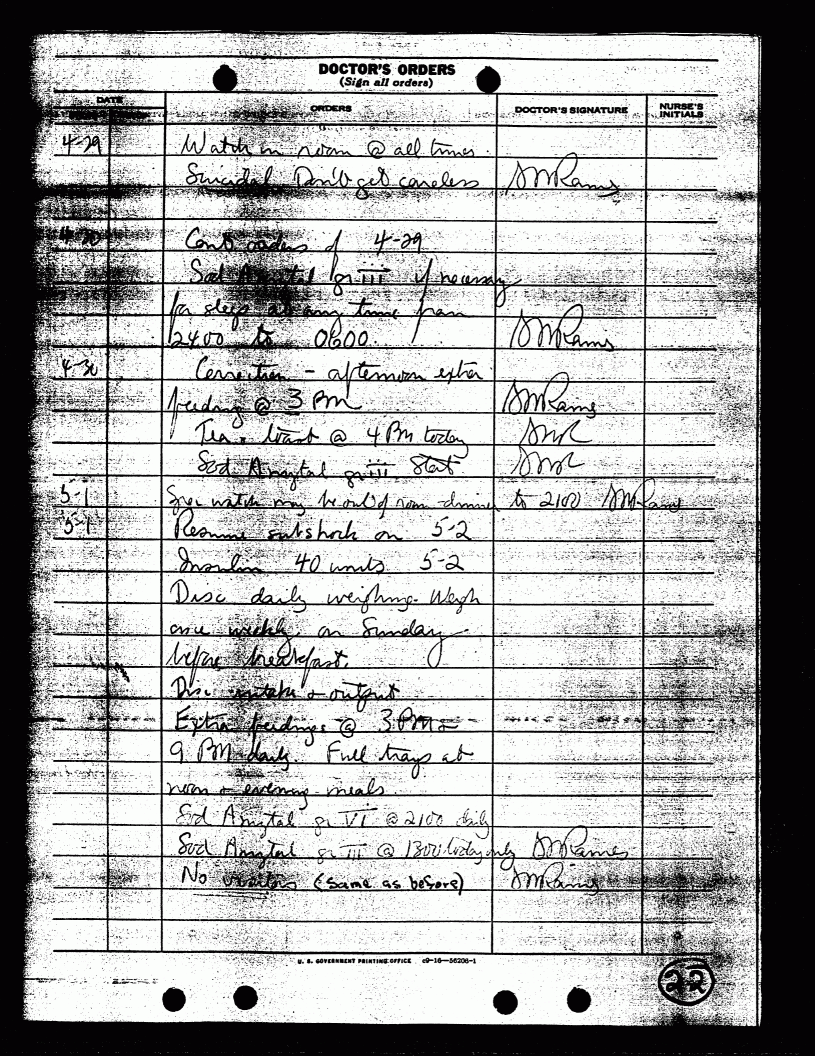 DOCTOR'S ORDERS
(Sign all orders)
DATE ORDERS DOCTOR'S SIGNATURE NURSE'S INITIALS
4-29 Watch in room @ all times
Suicidal Don't get careless
4-30 Cont orders of 4-29
Sod Amytal gr iii if necessary
for sleep at any time from
2400 to 0600.
4-30 Correction - afternoon extra
feeding @ 3 PM
Tea + toast @ 4 PM today
Sod Amytal gr iii Stat
5-1 Spec watch may be out of room to 2100
5-1 Resume subshock on 5-2
Insulin 40 units 5-2
Disc daily weighing. Weigh
once weekly on Sunday
before breakfast.
Disc intake + output
Extra feedings @ 3 PM
9 PM daily. Full trays at
noon + evening meals.
Sod Amytal gr VI @ 2100 daily
Sod Amytal gr iii @ 1300 today only
No visitors (same as before)
U. S. GOVERNMENT PRINTING OFFICE c9-16-56208-1
22